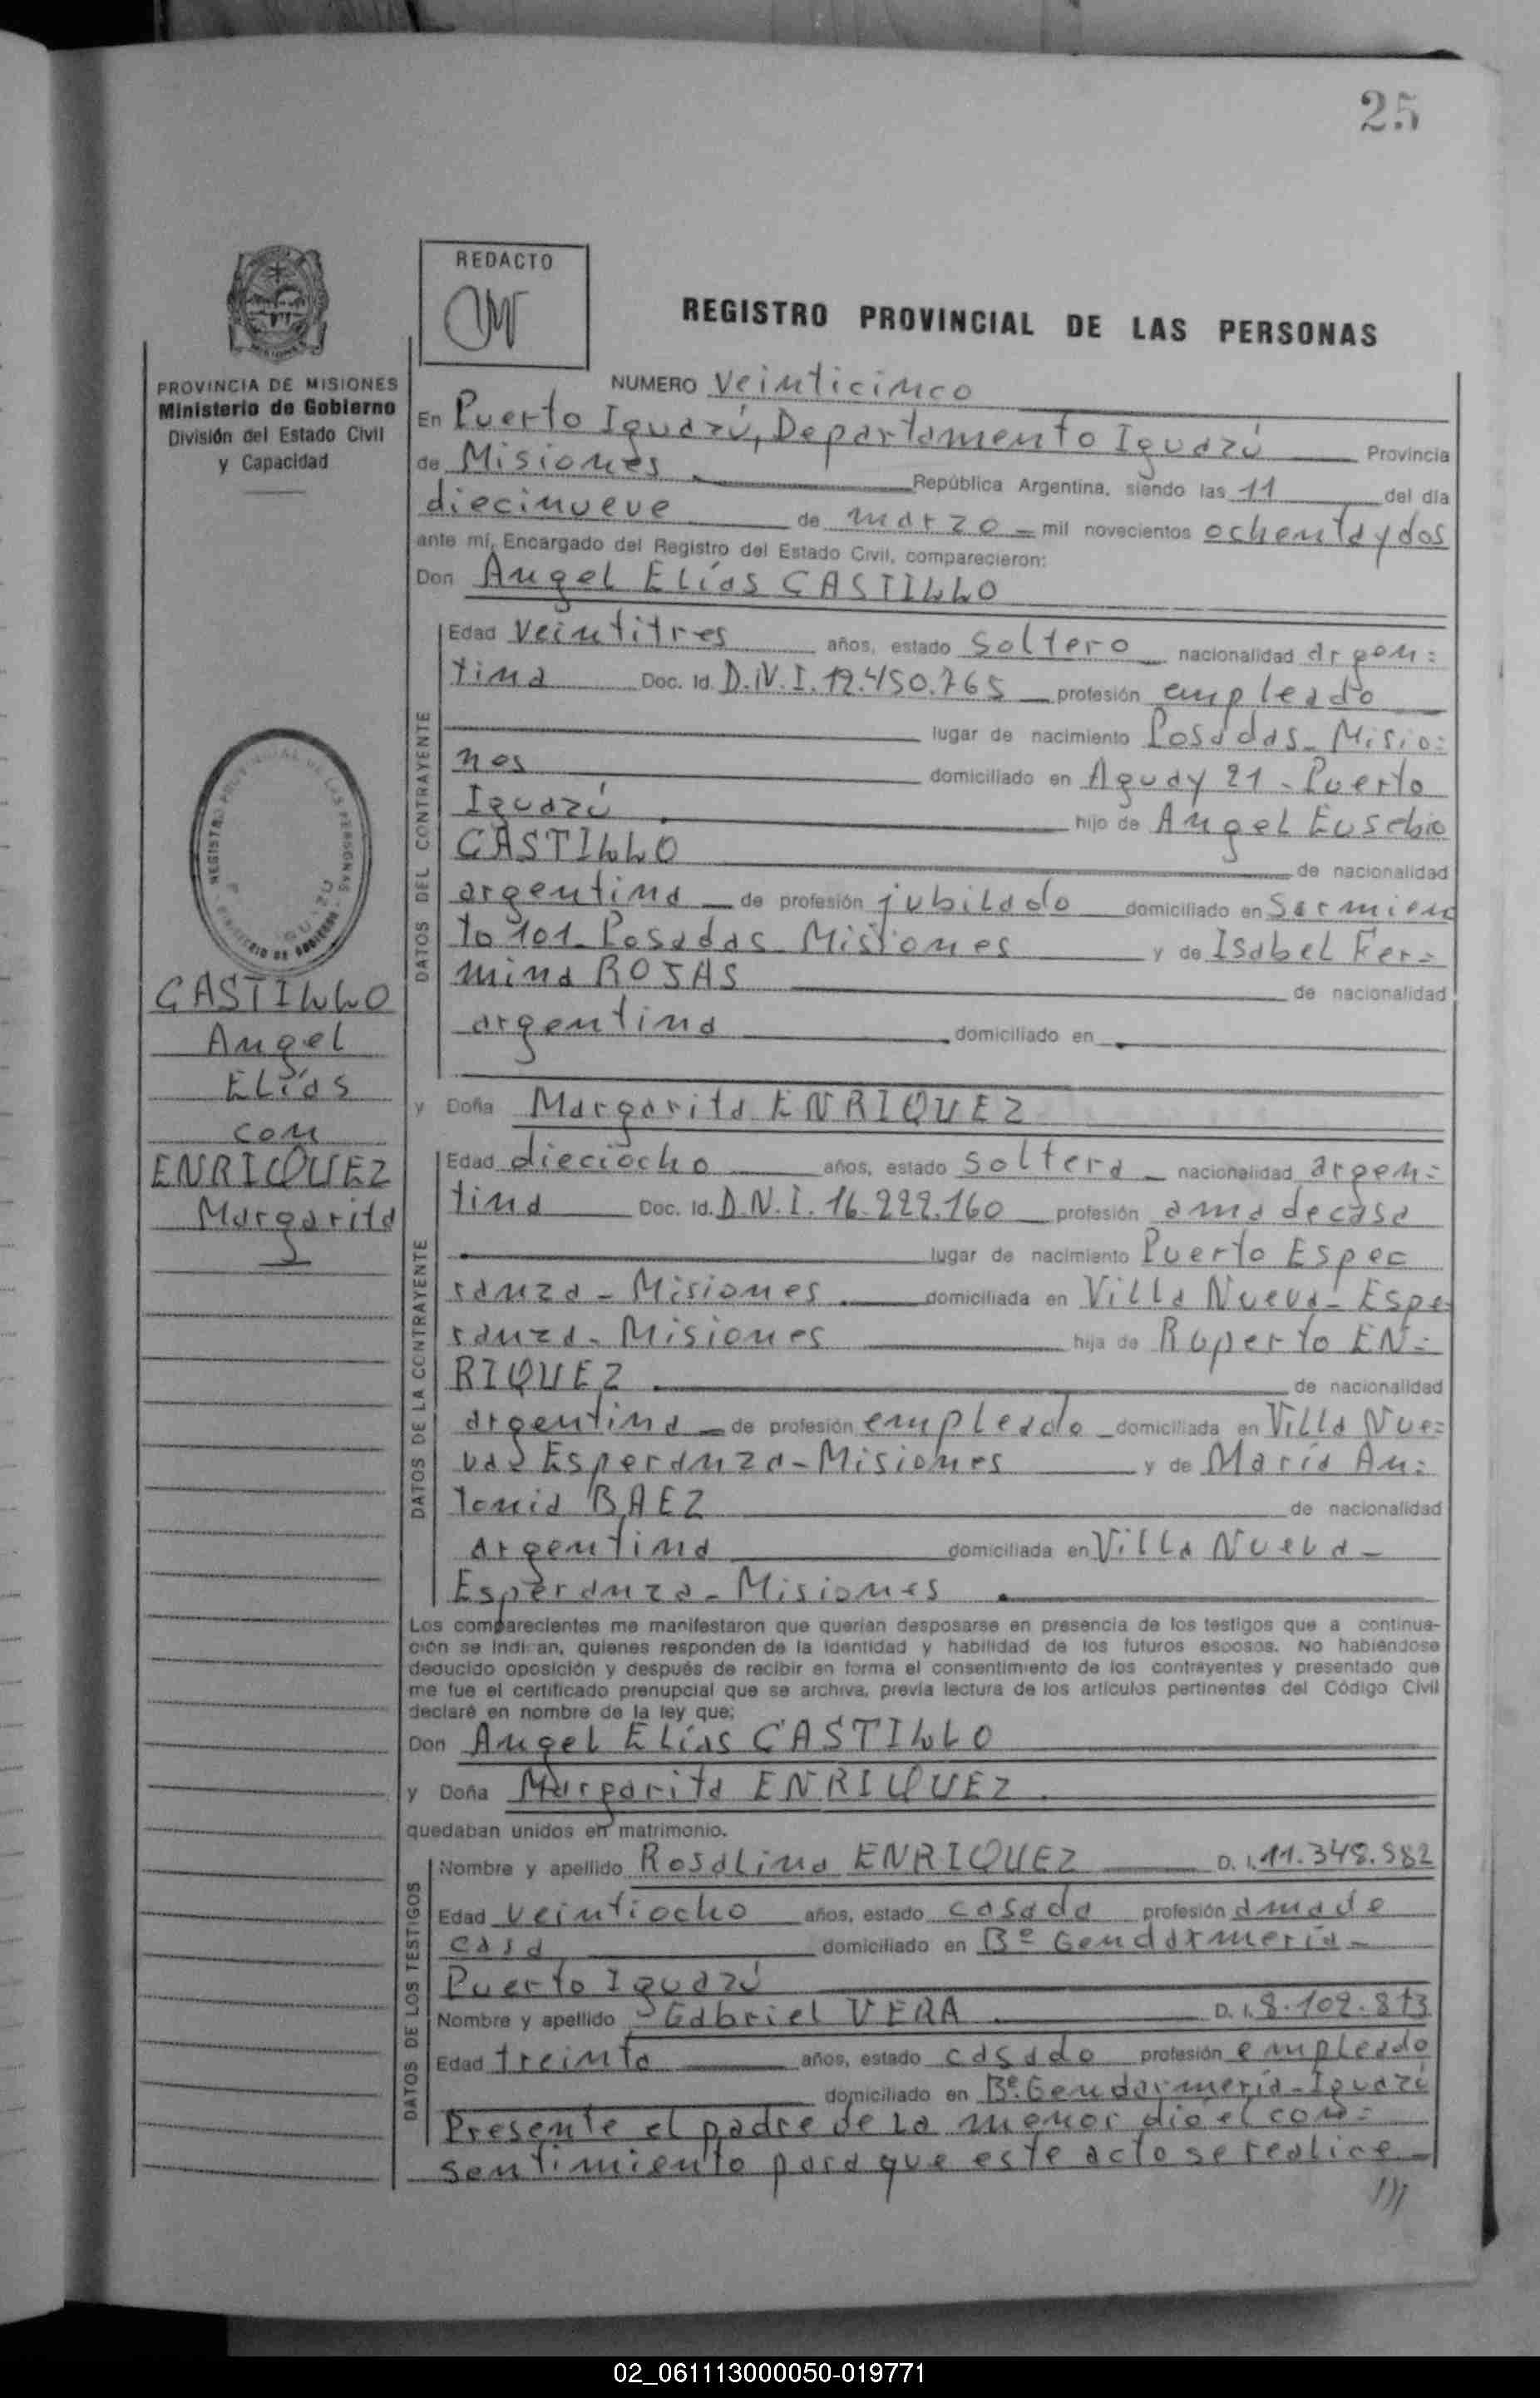 25
REDACTO
REGISTRO PROVINCIAL DE LAS PERSONAS
PROVINCIA DE MISIONES
Ministerio de Gobierno
División del Estado Civil
y Capacidad
NUMERO veinticinco
En Puerto Iguazú, Departamento Iguazú Provincia
de Misiones República Argentina, siendo las 11 del día
diecinueve de marzo mil novecientos ochenta y dos
ante mí, Encargado del Registro del Estado Civil, comparecieron:
Don Angel Elías CASTILLO
DATOS DEL CONTRAYENTE
Edad veintitres años, estado soltero nacionalidad argen=
tina Doc. Id. D.N.I. 12.450.765 profesión empleado
lugar de nacimiento Posadas - Misio=
nes domiciliado en Aguay 21 - Puerto
Iguazú hijo de Angel Eusebio
CASTILLO de nacionalidad
argentina de profesión jubilado domiciliado en Sarmien
to 101 - Posadas Misiones y de Isabel Fer=
mina ROJAS de nacionalidad
argentina domiciliado en
CASTILLO
Angel
Elías
con
ENRIQUEZ
Margarita
y Doña Margarita ENRIQUEZ
DATOS DE LA CONTRAYENTE
Edad dieciocho años, estado soltera nacionalidad argen=
tina Doc. Id. D.N.I. 16.222.160 profesión ama de casa
lugar de nacimiento Puerto Espe
ranza - Misiones domiciliada en Villa Nueva - Espe
ranza - Misiones hija de Ruperto EN=
RIQUEZ de nacionalidad
argentina de profesión empleado domiciliada en Villa Nue=
va - Esperanza - Misiones y de María An=
tonia BAEZ de nacionalidad
argentina domiciliada en Villa Nueva -
Esperanza - Misiones
Los comparecientes me manifestaron que querían desposarse en presencia de los testigos que a continua-
ción se indican, quienes responden de la identidad y habilidad de los futuros esposos. No habiéndose
deducido oposición y después de recibir en forma el consentimiento de los contrayentes y presentado que
me fue el certificado prenupcial que se archiva, previa lectura de los artículos pertinentes del Código Civil
declaré en nombre de la ley que;
Don Angel Elías CASTILLO
y Doña Margarita ENRIQUEZ
quedaban unidos en matrimonio.
DATOS DE LOS TESTIGOS
Nombre y apellido Rosalina ENRIQUEZ D. I. 11.348.982
Edad veintiocho años, estado casada profesión ama de
casa domiciliado en Bº Gendarmería -
Puerto Iguazú
Nombre y apellido Gabriel VERA D. I. 8.109.873
Edad treinta años, estado casado profesión empleado
domiciliado en Bº. Gendarmería - Iguazú
Presente el padre de la menor dió el con=
sentimiento para que este acto se realice
02_061113000050-019771